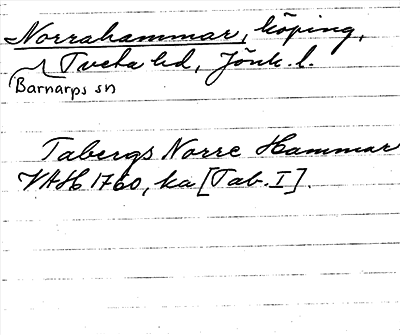 Norrahammar, köping,
Tveta hd, Jönk. l.
Barnarps sn
Tabergs Norre Hammar
VAH 1760, ka [Tab. I].